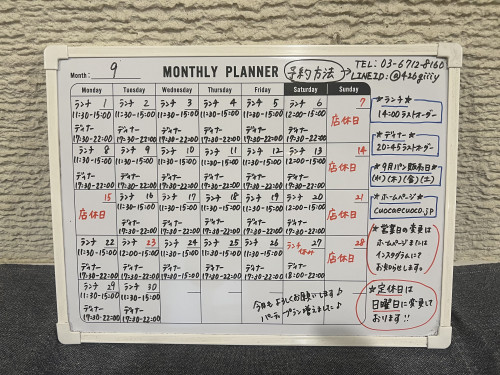 Month: 9
MONTHLY PLANNER
予約方法
TEL: 03-6712-8160
LINE ID: @426giiiy
Monday Tuesday Wednesday Thursday Friday Saturday Sunday
ランチ 1 ランチ 2 ランチ 3 ランチ 4 ランチ 5 ランチ 6 7
11:30-15:00 11:30-15:00 11:30-15:00 11:30-15:00 11:30-15:00 12:00-15:00 店休日
ディナー ディナー ディナー ディナー ディナー ディナー
17:30-22:00 17:30-22:00 17:30-22:00 17:30-22:00 17:30-22:00 17:30-22:00
ランチ 8 ランチ 9 ランチ 10 ランチ 11 ランチ 12 ランチ 13 14
11:30-15:00 11:30-15:00 11:30-15:00 11:30-15:00 11:30-15:00 12:00-15:00 店休日
ディナー ディナー ディナー ディナー ディナー ディナー
17:30-22:00 17:30-22:00 17:30-22:00 17:30-22:00 17:30-22:00 17:30-22:00
15 ランチ 16 ランチ 17 ランチ 18 ランチ 19 ランチ 20 21
店休日 11:30-15:00 11:30-15:00 11:30-15:00 11:30-15:00 12:00-15:00 店休日
ディナー ディナー ディナー ディナー ディナー
17:30-22:00 17:30-22:00 17:30-22:00 17:30-22:00 17:30-22:00
ランチ 22 ランチ 23 ランチ 24 ランチ 25 ランチ 26 ランチ 27 28
11:30-15:00 11:30-15:00 11:30-15:00 11:30-15:00 11:30-15:00 休み 店休日
ディナー ディナー ディナー ディナー ディナー ディナー
17:30-22:00 17:30-22:00 17:30-22:00 17:30-22:00 17:30-22:00 18:00-22:00
ランチ 29 ランチ 30
11:30-15:00 11:30-15:00
ディナー ディナー
17:30-22:00 17:30-22:00
今月もよろしくお願いします♪
パーティープラン増えました♪
*ランチ*
14:00ラストオーダー
*ディナー*
20:45ラストオーダー
*9月パン販売日*
(水)(木)(金)(土)
*ホームページ*
cuocaecuoco.jp
*営業日の変更は
ホームページまたは
インスタグラムにて
お知らせします。
*定休日は
日曜日に変更して
おります!!